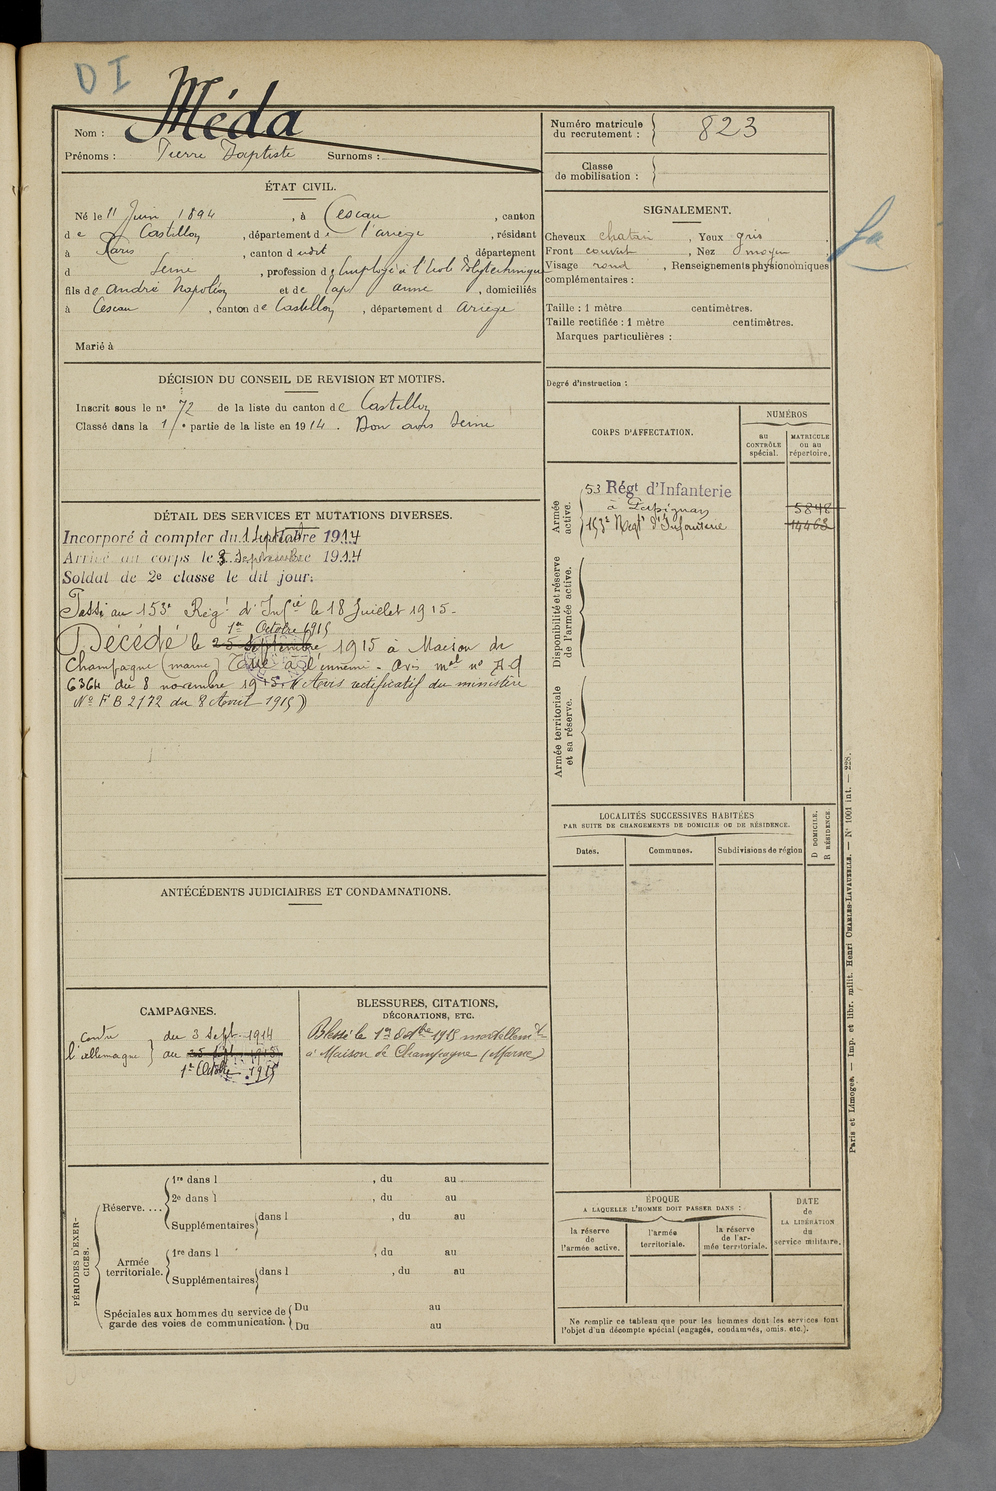 DI
Nom : Méda
Prénoms : Pierre Baptiste Surnoms :
Numéro matricule du recrutement : 823
Classe de mobilisation :
ÉTAT CIVIL.
Né le 11 Juin 1894, à Cescau, canton
de Castillon, département de l'ariège, résidant
à Paris, canton d udit département
d Seine, profession de Employé à l'Ecole Polytechnique
fils de André Napoléon et de Cap anne, domiciliés
à Cescau, canton de Castillon, département d Ariège
Marié à
SIGNALEMENT.
Cheveux chatain, Yeux gris,
Front couvert, Nez moyen
Visage rond, Renseignements physionomiques
complémentaires :
Taille : 1 mètre centimètres.
Taille rectifiée : 1 mètre centimètres.
Marques particulières :
Degré d'instruction :
DÉCISION DU CONSEIL DE REVISION ET MOTIFS.
Inscrit sous le n° 72 de la liste du canton de Castillon
Classé dans la 1re partie de la liste en 1914. Bon avis Seine
CORPS D'AFFECTATION.
NUMÉROS
au CONTRÔLE spécial.
MATRICULE ou au répertoire.
Armée active.
53 Régt d'Infanterie
à Perpignan 5848
153e Régt d'Infanterie 14468
Disponibilité et réserve de l'armée active.
Armée territoriale et sa réserve.
DÉTAIL DES SERVICES ET MUTATIONS DIVERSES.
Incorporé à compter du 1 Septembre 1914
Arrivé au corps le 3 Septembre 1914
Soldat de 2e classe le dit jour.
Passé au 153e Régt d'Infie le 18 Juillet 1915.
1er Octobre 1915
Décédé le 25 Septembre 1915 à Maison de
Champagne (marne) Tué à l'ennemi. Avis mel n°
6364 du 8 novembre 1915. (Avis rectificatif du ministère
N° FB 2172 du 8 Avril 1915)
LOCALITÉS SUCCESSIVES HABITÉES
PAR SUITE DE CHANGEMENTS DE DOMICILE OU DE RÉSIDENCE.
Dates.
Communes.
Subdivisions de région
D DOMICILE.
R RÉSIDENCE
ANTÉCÉDENTS JUDICIAIRES ET CONDAMNATIONS.
CAMPAGNES.
Contre l'allemagne
du 3 Sept. 1914
au 25 Sept. 1915
1er Octobre 1915
BLESSURES, CITATIONS,
DÉCORATIONS, ETC.
Blessé le 1er Octbre 1915 mortellemt
à Maison de Champagne (Marne)
PÉRIODES D'EXERCICES.
Réserve....
1re dans l , du au
2e dans l , du au
Supplémentaires dans l , du au
Armée territoriale.
1re dans l , du au
Supplémentaires dans l , du au
Spéciales aux hommes du service de
garde des voies de communication.
Du au
Du au
ÉPOQUE
A LAQUELLE L'HOMME DOIT PASSER DANS :
la réserve de l'armée active.
l'armée territoriale.
la réserve de l'armée territoriale.
DATE de LA LIBÉRATION du service militaire.
Ne remplir ce tableau que pour les hommes dont les services font
l'objet d'un décompte spécial (engagés, condamnés, omis, etc.).
Paris et Limoges. — Imp. et libr. milit. Henri CHARLES-LAVAUZELLE. — N° 1001 int. — 228.